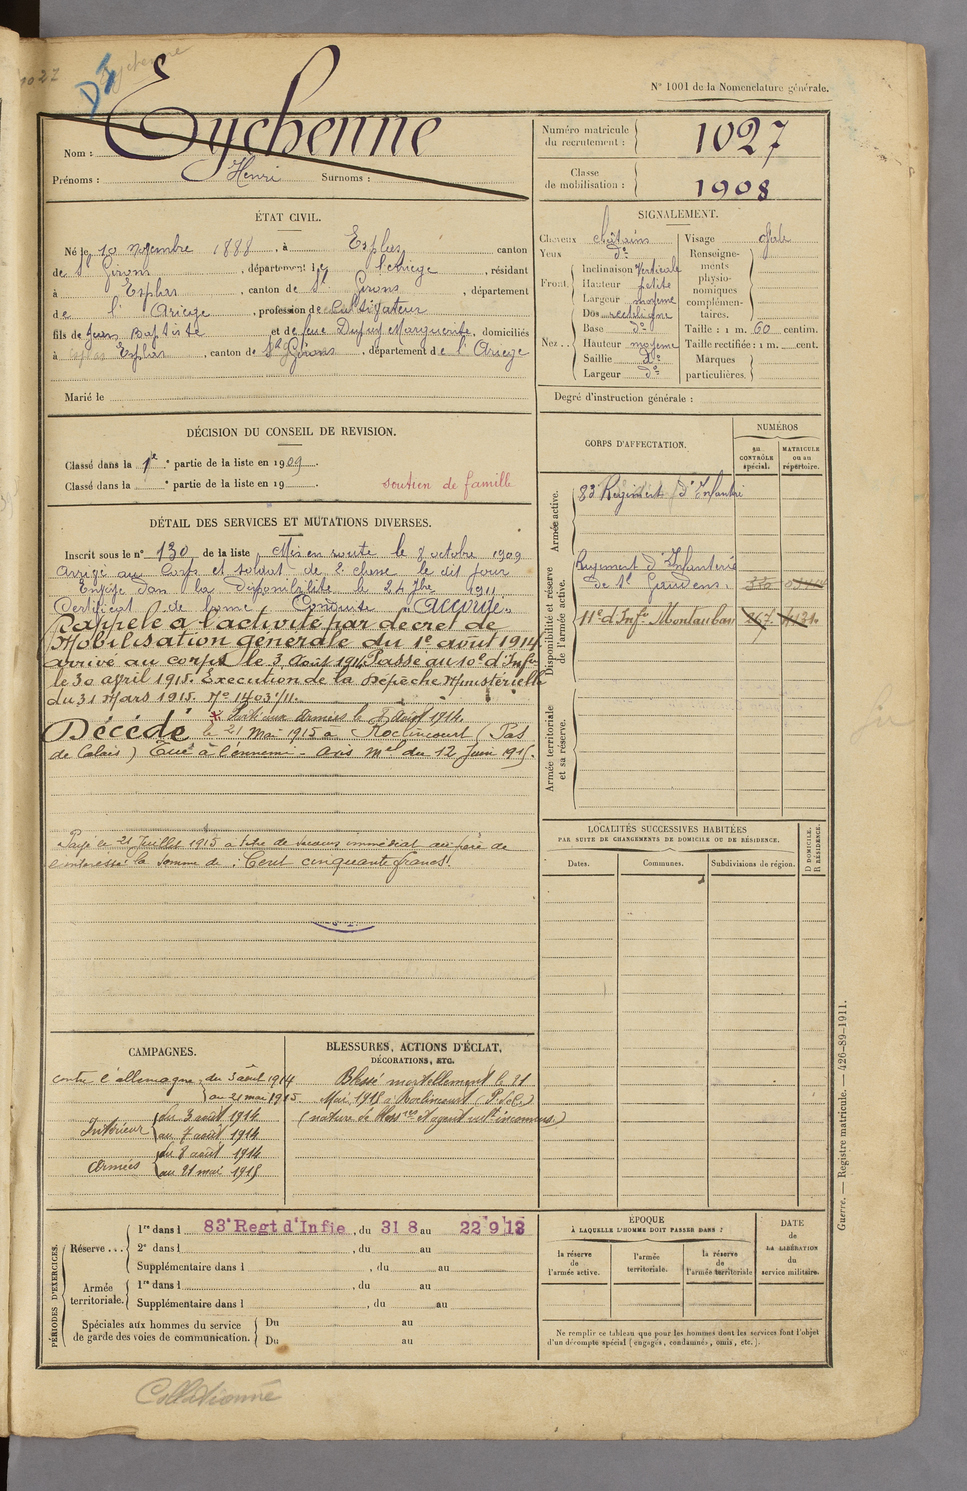 1027
DI
Eychenne
N° 1001 de la Nomenclature générale.
Nom : Eychenne
Prénoms : Henri Surnoms :
Numéro matricule du recrutement : 1027
Classe de mobilisation : 1908
ÉTAT CIVIL.
Né le 10 novembre 1888, à Esplas, canton
de St Girons, département de l'Ariège, résidant
à Esplas, canton de St Girons, département
de l'Ariège, profession de cultivateur
fils de Jean Baptiste et de feue Dupuy Marguerite, domiciliés
à Esplas, canton de St Girons, département de l'Ariège
Marié le
SIGNALEMENT.
Cheveux châtains
Yeux d°
Front. Inclinaison verticale
Hauteur petite
Largeur moyenne
Nez.. Dos rectiligne
Base d°
Hauteur moyenne
Saillie d°
Largeur d°
Visage ovale
Renseignements physionomiques complémentaires.
Taille : 1 m. 60 centim.
Taille rectifiée : 1 m. cent.
Marques particulières.
Degré d'instruction générale :
DÉCISION DU CONSEIL DE REVISION.
Classé dans la 1re partie de la liste en 1909.
Classé dans la e partie de la liste en 19
soutien de famille
DÉTAIL DES SERVICES ET MUTATIONS DIVERSES.
Inscrit sous le n° 130 de la liste Mis en route le 7 octobre 1909
arrivé au Corps et soldat de 2e classe le dit jour
la disponibilité le 24 7bre 1911.
Certificat de bonne Conduite "accordé".
Rappelé à l'activité par décret de
Mobilisation générale du 1e août 1914
arrivé au corps le 3 Août 1914. Passé au 10e d'Infie
le 30 avril 1915. Execution de la Dépêche Ministérielle
du 31 Mars 1915. N° 1403 1/11.
x Parti aux Armées le 8 Août 1914.
Décédé le 21 Mai 1915 à Roclincourt (Pas
de Calais) Tué à l'ennemi - Avis Mel du 12 Juin 1915.
Payé le 21 Juillet 1915 à titre de secours immédiat au père de
l'intéressé la somme de : Cent cinquante francs.
CORPS D'AFFECTATION.
NUMÉROS
au CONTRÔLE spécial.
MATRICULE ou au répertoire.
Armée active.
83e Régiment d'Infanterie
Disponibilité et réserve de l'armée active.
Régiment d'Infanterie
de St Gaudens.
11e d'Infie Montauban
Armée territoriale et sa réserve.
LOCALITÉS SUCCESSIVES HABITÉES
PAR SUITE DE CHANGEMENTS DE DOMICILE OU DE RÉSIDENCE.
Dates.
Communes.
Subdivisions de région.
D DOMICILE.
R RÉSIDENCE.
CAMPAGNES.
contre l'allemagne du 3 août 1914
au 21 mai 1915
Intérieur du 3 août 1914
au 7 août 1914
Armées du 8 août 1914
au 21 mai 1915
BLESSURES, ACTIONS D'ÉCLAT,
DÉCORATIONS, ETC.
Blessé mortellement le 21
Mai 1915 à Roclincourt (P.de C.)
PÉRIODES D'EXERCICES.
Réserve... 1re dans l 83e Regt d'Infie, du 31 8 au 22 9 13
2e dans l , du au
Supplémentaire dans l , du au
Armée territoriale. 1re dans l , du au
Supplémentaire dans l , du au
Spéciales aux hommes du service de garde des voies de communication. Du au
Du au
ÉPOQUE
À LAQUELLE L'HOMME DOIT PASSER DANS :
la réserve de l'armée active.
l'armée territoriale.
la réserve de l'armée territoriale
DATE de LA LIBÉRATION du service militaire.
Ne remplir ce tableau que pour les hommes dont les services font l'objet
d'un décompte spécial (engagés, condamnés, omis, etc.).
Guerre. — Registre matricule. — 426-89-1911.
Collationné